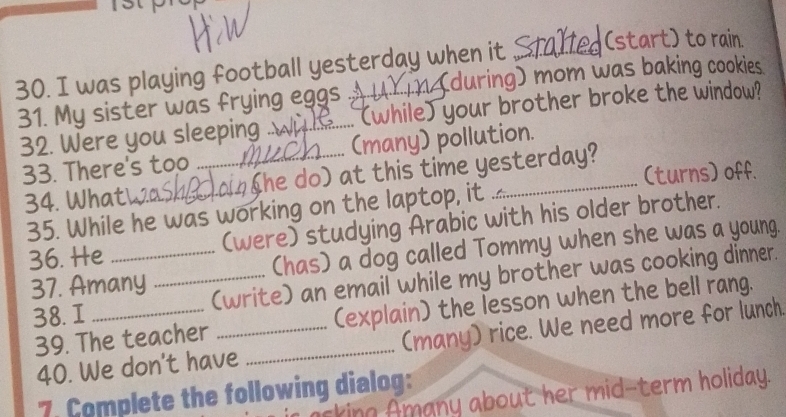 H.W
30. I was playing football yesterday when it started (start) to rain.
31. My sister was frying eggs during (during) mom was baking cookies.
32. Were you sleeping ............ (while) your brother broke the window?
33. There's too much (many) pollution.
34. What was he doing (he do) at this time yesterday?
35. While he was working on the laptop, it ............ (turns) off.
36. He ............ (were) studying Arabic with his older brother.
37. Amany ............ (has) a dog called Tommy when she was a young.
38. I ............ (write) an email while my brother was cooking dinner.
39. The teacher ............ (explain) the lesson when the bell rang.
40. We don't have ............ (many) rice. We need more for lunch.
7. Complete the following dialog:
asking Amany about her mid-term holiday.